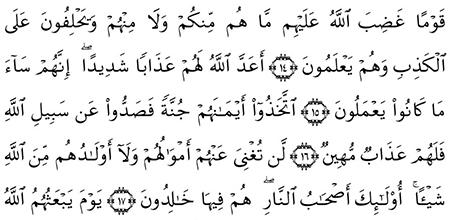 قَوْمًا غَضِبَ اللَّهُ عَلَيْهِم مَّا هُم مِّنكُمْ وَلَا مِنْهُمْ وَيَحْلِفُونَ عَلَى
الْكَذِبِ وَهُمْ يَعْلَمُونَ ﴿١٤﴾ أَعَدَّ اللَّهُ لَهُمْ عَذَابًا شَدِيدًا ۖ إِنَّهُمْ سَآءَ
مَا كَانُوا۟ يَعْمَلُونَ ﴿١٥﴾ اتَّخَذُوٓا۟ أَيْمَـٰنَهُمْ جُنَّةً فَصَدُّوا۟ عَن سَبِيلِ اللَّهِ
فَلَهُمْ عَذَابٌ مُّهِينٌ ﴿١٦﴾ لَّن تُغْنِىَ عَنْهُمْ أَمْوَٰلُهُمْ وَلَآ أَوْلَـٰدُهُم مِّنَ اللَّهِ
شَيْـًٔا ۚ أُو۟لَـٰٓئِكَ أَصْحَـٰبُ النَّارِ ۖ هُمْ فِيهَا خَـٰلِدُونَ ﴿١٧﴾ يَوْمَ يَبْعَثُهُمُ اللَّهُ